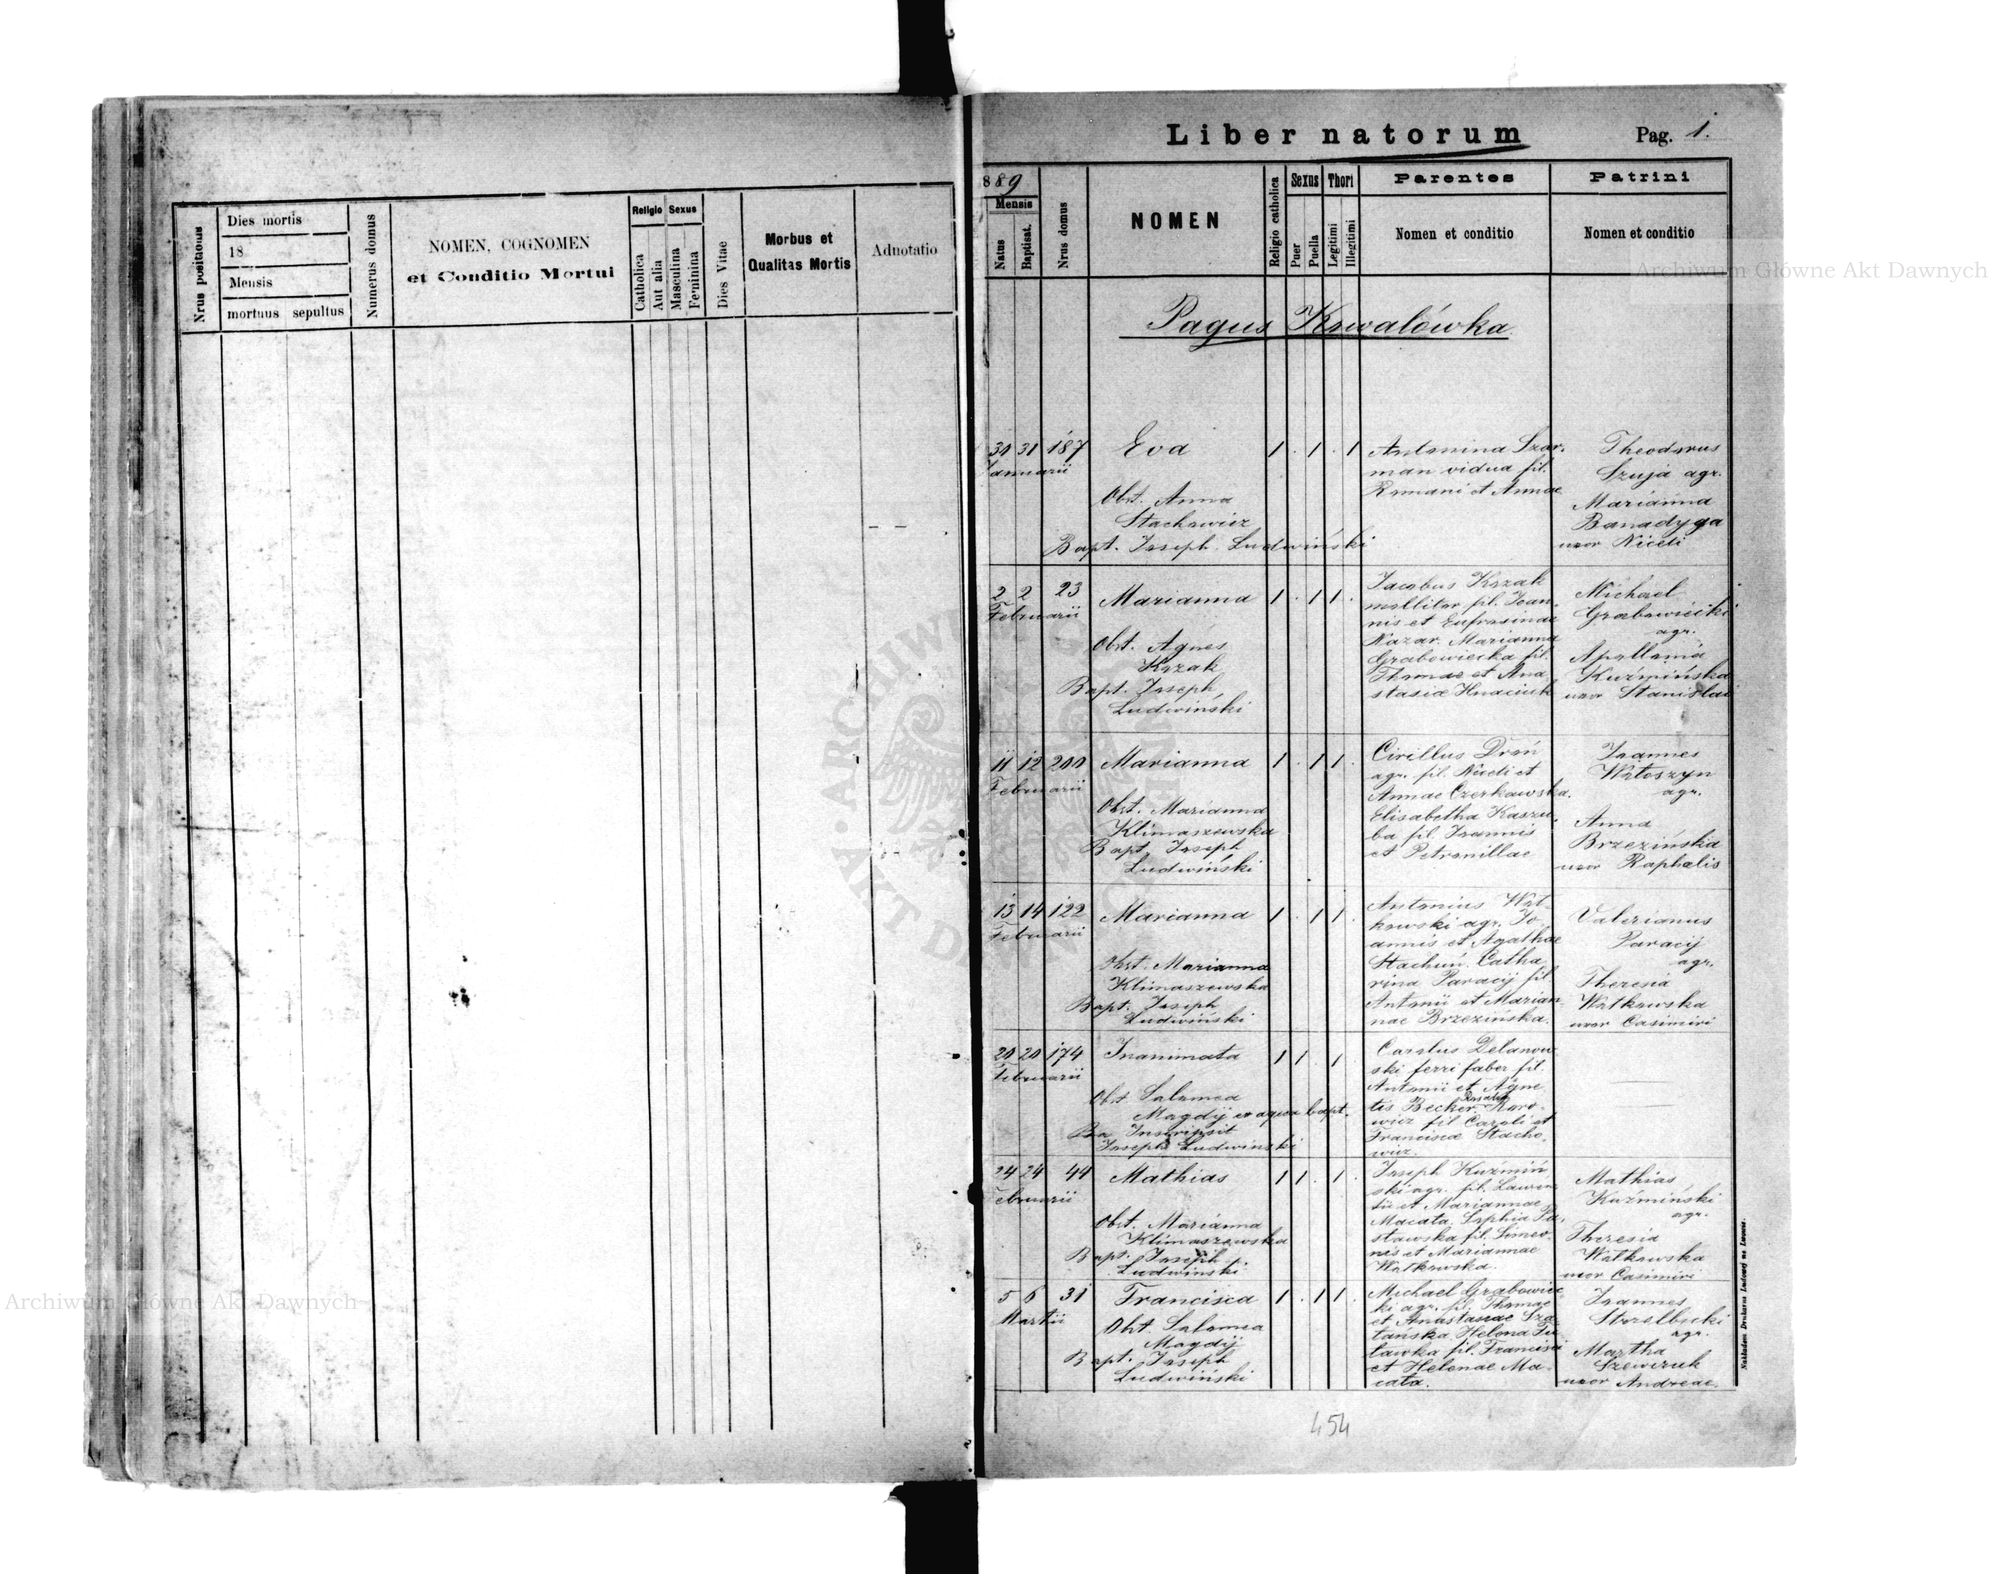 Nrus positarius
Dies mortis
18
Mensis
mortuus sepultus
Numerus domus
NOMEN, COGNOMEN
et Conditio Mortui
Religio
Catholica
Aut alia
Sexus
Masculina
Feminina
Dies Vitae
Morbus et
Qualitas Mortis
Adnotatio
Liber natorum
Pag. 1.
889
Mensis
Natus
Baptisat.
Nrus domus
NOMEN
Religio catholica
Sexus
Puer
Puella
Thori
Legitimi
Illegitimi
Parentes
Nomen et conditio
Patrini
Nomen et conditio
Archiwum Główne Akt Dawnych
Pagus Kowalówka
30 31 187
Januarii
Eva
Obst. Anna
Stachowicz
Bapt. Joseph Ludwiński
1 . 1 . 1
Antonina Szor-
man vidua fil.
Romani et Annae
Theodorus
Szuja agr.
Marianna
Banadyga
uxor Niceti
2 2 23
Februarii
Marianna
Obst. Agnes
Krzak
Bapt. Joseph
Ludwiński
1 . 1 1 .
Jacobus Krzak
molitor fil. Joan-
nis et Eufrosinae
Kozar. Marianna
Grabowiecka fil.
Thomae et Ana
stasiae Hnaciuk
Michael
Grabowiecki
agr.
Apollonia
Kuźmińska
uxor Stanislai
11 12 200
Februarii
Marianna
Obst. Marianna
Klimaszewska
Bapt. Joseph
Ludwiński
1 . 1 1 .
Cirillus Droń
agr. fil. Niceti et
Annae Czerkawska.
Elisabetha Kaszu-
ba fil. Joannis
et Petronillae
Joannes
Wołoszyn
agr.
Anna
Brzezińska
uxor Raphalis
13 14 122
Februarii
Marianna
Obst. Marianna
Klimaszewska
Bapt. Joseph
Ludwiński
1 . 1 1 .
Antonius Wit-
kowski agr. Jo
annis et Agathae
Stachuń. Catha
rina Paracij fil
Antonii et Marian-
nae Brzezińska.
Valerianus
Paracij
agr.
Theresia
Witkowska
uxor Casimiri
20 20 174
Februarii
Inanimata
Obst. Salomea
Magdij ex aqua bapt.
Ba Inscripsit
Joseph Ludwiński
1 1 . 1 .
Carolus Delanow
ski ferri faber fil.
Antonii et Agne
tis Becker. Rosalia Koro-
wicz fil Caroli et
Franciscae Stacho-
wicz.
24 24 44
Februarii
Mathias
Obst. Marianna
Klimaszewska
Bapt. Joseph
Ludwiński
1 1 . 1 .
Joseph Kuźmiń
ski agr. fil. Lauren
tii et Mariannae
Macata. Sophia Pa-
stawska fil. Simeo-
nis et Mariannae
Witkowska.
Mathias
Kuźmiński
agr.
Theresia
Witkowska
uxor Casimiri
5 6 31
Martii
Francisca
Obst. Salomea
Magdij
Bapt. Joseph
Ludwiński
1 . 1 1 .
Michael Grabowiec-
ki agr. fil. Thomae
et Anastasiae Sza-
tańska. Helena Pi-
lawka fil. Francisci
et Helenae Ma-
cata.
Joannes
Strzelbicki
agr.
Martha
Szewczuk
uxor Andreae.
Nakładem Drukarni Ludowej we Lwowie.
454
ARCHIWUM GŁÓWNE AKT DAWNYCH
Archiwum Główne Akt Dawnych